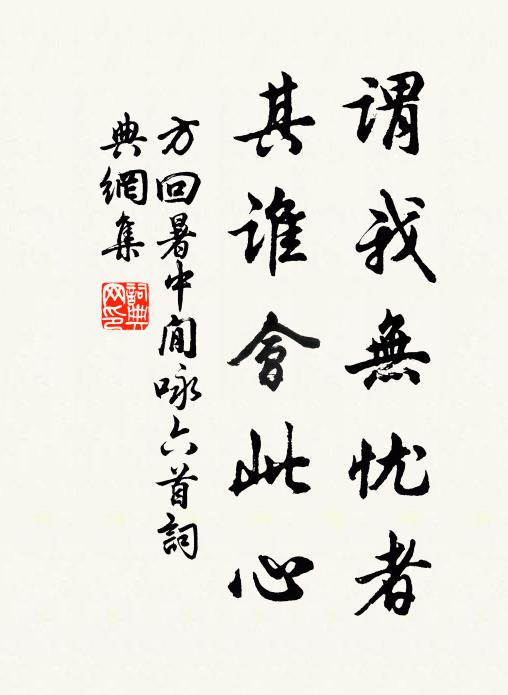 謂我無忧者
其誰會此心
方回暑中閒咏六首詞
典網集
詞典
网印